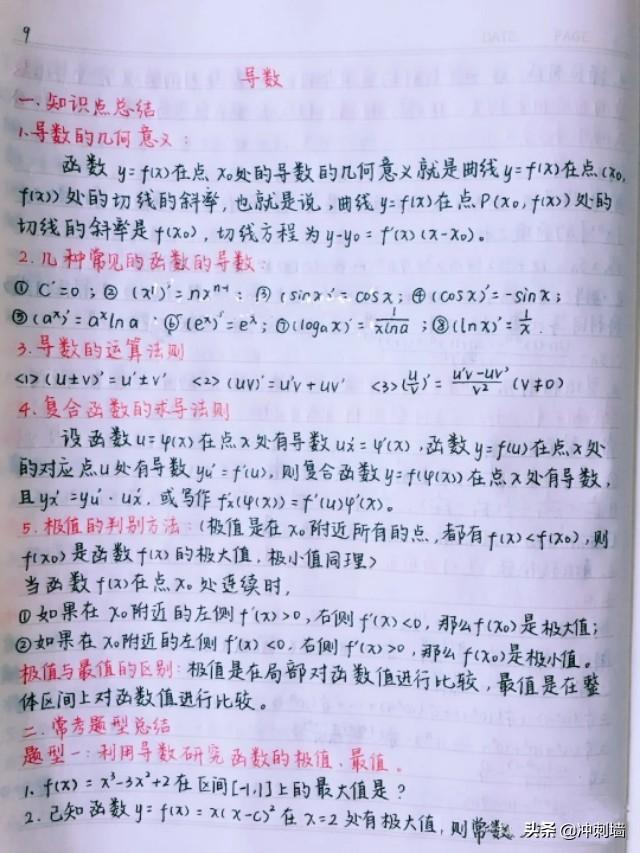 9
DATE PAGE
导数
一.知识点总结
1.导数的几何意义:
函数 y=f(x)在点 x₀处的导数的几何意义就是曲线y=f(x)在点(x₀,
f(x))处的切线的斜率,也就是说,曲线y=f(x)在点P(x₀,f(x))处的
切线的斜率是f(x₀),切线方程为y-y₀=f'(x)(x-x₀)。
2.几种常见的函数的导数:
① C'=0;② (xⁿ)'=nxⁿ⁻¹;③(sinx)'=cosx;④(cosx)'=-sinx;
⑤(aˣ)'=aˣlna ⑥(eˣ)'=eˣ;⑦(logax)'=1/xlna;⑧(lnx)'=1/x.
3.导数的运算法则
<1>(u±v)'=u'±v' <2>(uv)'=u'v+uv' <3>(u/v)'=u'v-uv'/v²(v≠0)
4.复合函数的求导法则
设函数u=φ(x)在点x处有导数ux'=φ'(x),函数y=f(u)在点x处
的对应点u处有导数yu'=f'(u),则复合函数y=f(φ(x))在点x处有导数,
且yx'=yu'·ux',或写作fx'(φ(x))=f'(u)φ'(x)。
5.极值的判别方法:(极值是在x₀附近所有的点,都有f(x)<f(x₀),则
f(x₀)是函数f(x)的极大值,极小值同理>
当函数f(x)在点x₀处连续时,
①如果在x₀附近的左侧f'(x)>0,右侧f'(x)<0,那么f(x₀)是极大值;
②如果在x₀附近的左侧f'(x)<0,右侧f'(x)>0,那么f(x₀)是极小值。
极值与最值的区别:极值是在局部对函数值进行比较,最值是在整
体区间上对函数值进行比较。
二.常考题型总结
题型一:利用导数研究函数的极值、最值。
1. f(x)=x³-3x²+2在区间[-1,1]上的最大值是?
2.已知函数y=f(x)=x(x-c)²在x=2处有极大值,则常数
头条 @冲刺墙